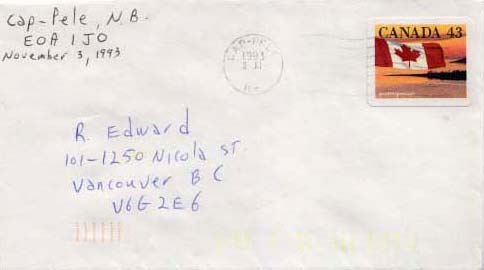 Cap-Pele, N.B.
E0A 1J0
November 3, 1993
CAP-PELE
1993
CANADA 43
R. Edward
101-1250 Nicola ST.
Vancouver B C
V6G 2E6